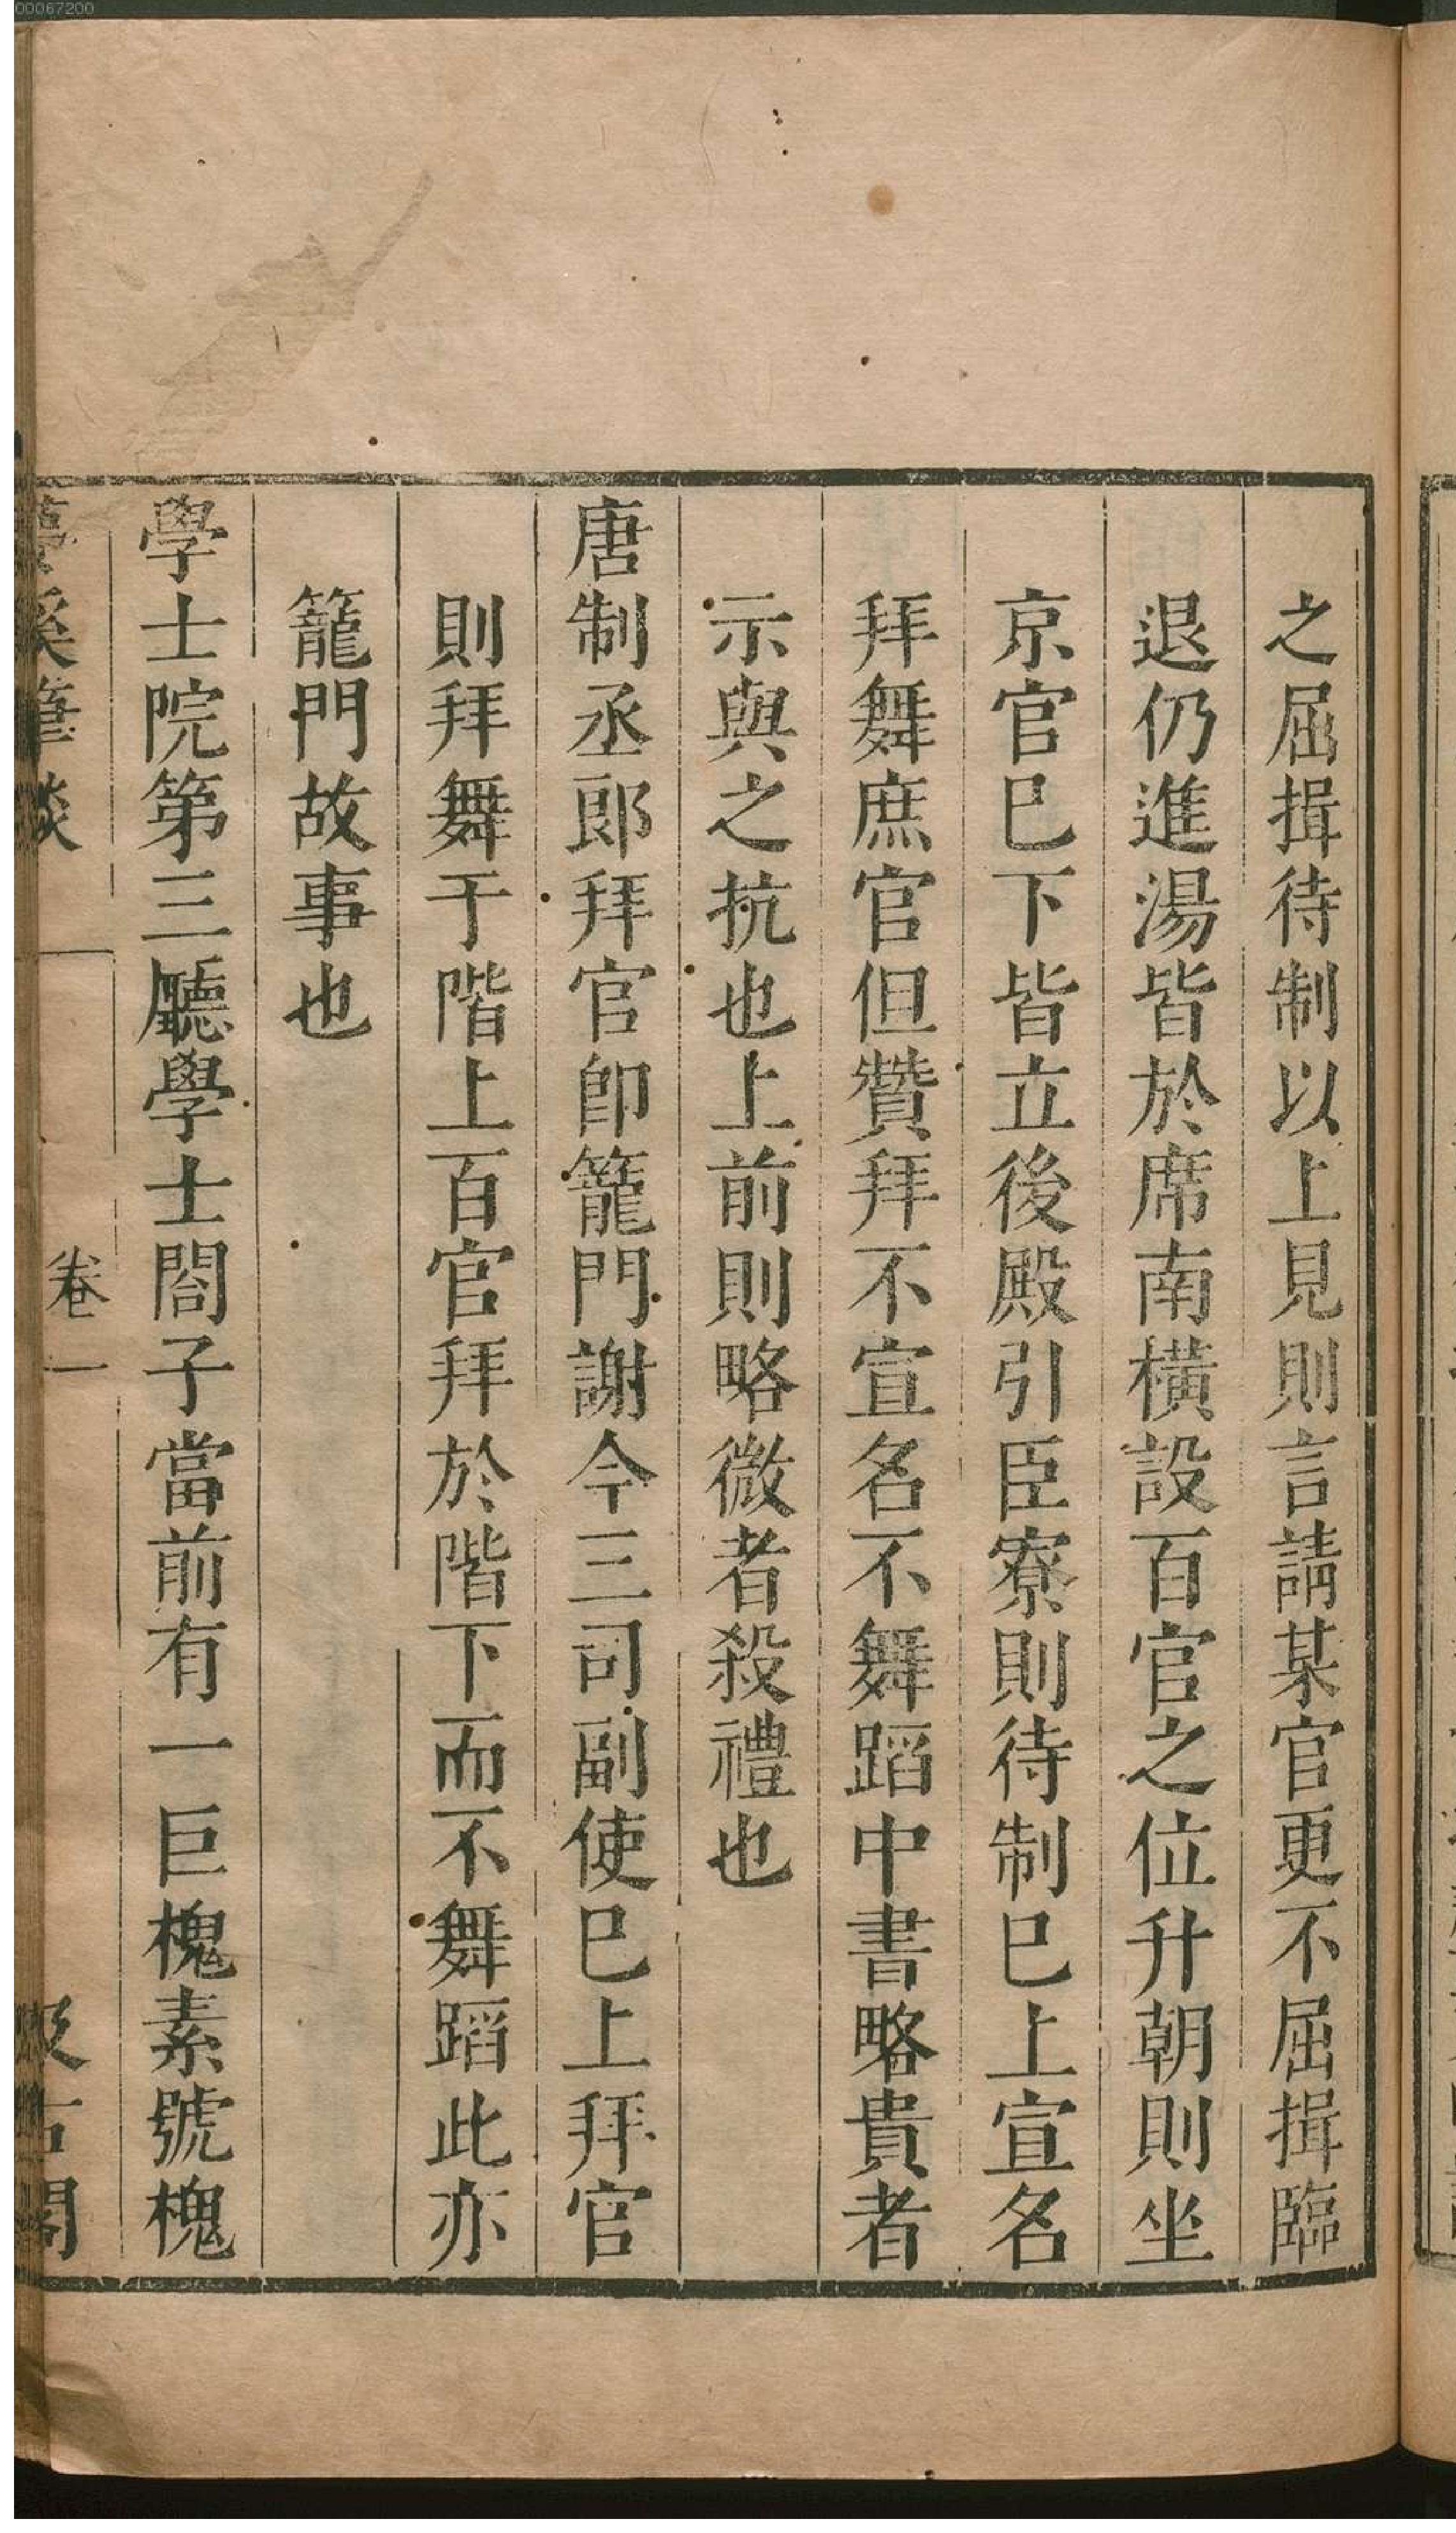 00067200
之屈揖待制以上見則言請某官更不屈揖臨
退仍進湯皆於席南橫設百官之位升朝則坐
京官巳下皆立後殿引臣寮則待制巳上宣名
拜舞庶官但贊拜不宣名不舞蹈中書略貴者
示與之抗也上前則略微者殺禮也
唐制丞郎拜官卽籠門謝今三司副使巳上拜官
則拜舞于階上百官拜於階下而不舞蹈此亦
籠門故事也
學士院第三廳學士閤子當前有一巨槐素號槐
夢溪筆談
卷一
汲古閣